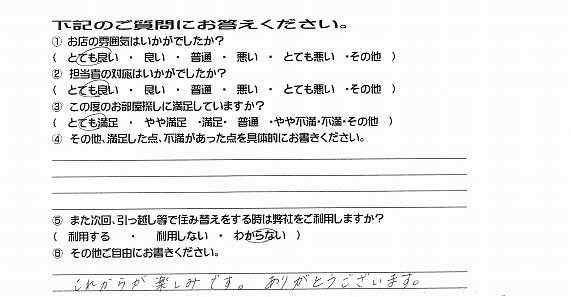 下記のご質問にお答えください。
① お店の雰囲気はいかがでしたか?
( とても良い ・ 良い ・ 普通 ・ 悪い ・ とても悪い ・その他 )
② 担当者の対応はいかがでしたか?
( とても良い ・ 良い ・ 普通 ・ 悪い ・ とても悪い ・その他 )
③ この度のお部屋探しに満足していますか?
( とても満足 ・ やや満足 ・満足・ 普通 ・やや不満・不満・その他 )
④ その他、満足した点、不満があった点を具体的にお書きください。
⑤ また次回、引っ越し等で住み替えをする時は弊社をご利用しますか?
( 利用する ・ 利用しない ・ わからない )
⑥ その他ご自由にお書きください。
これからが楽しみです。 ありがとうございます。